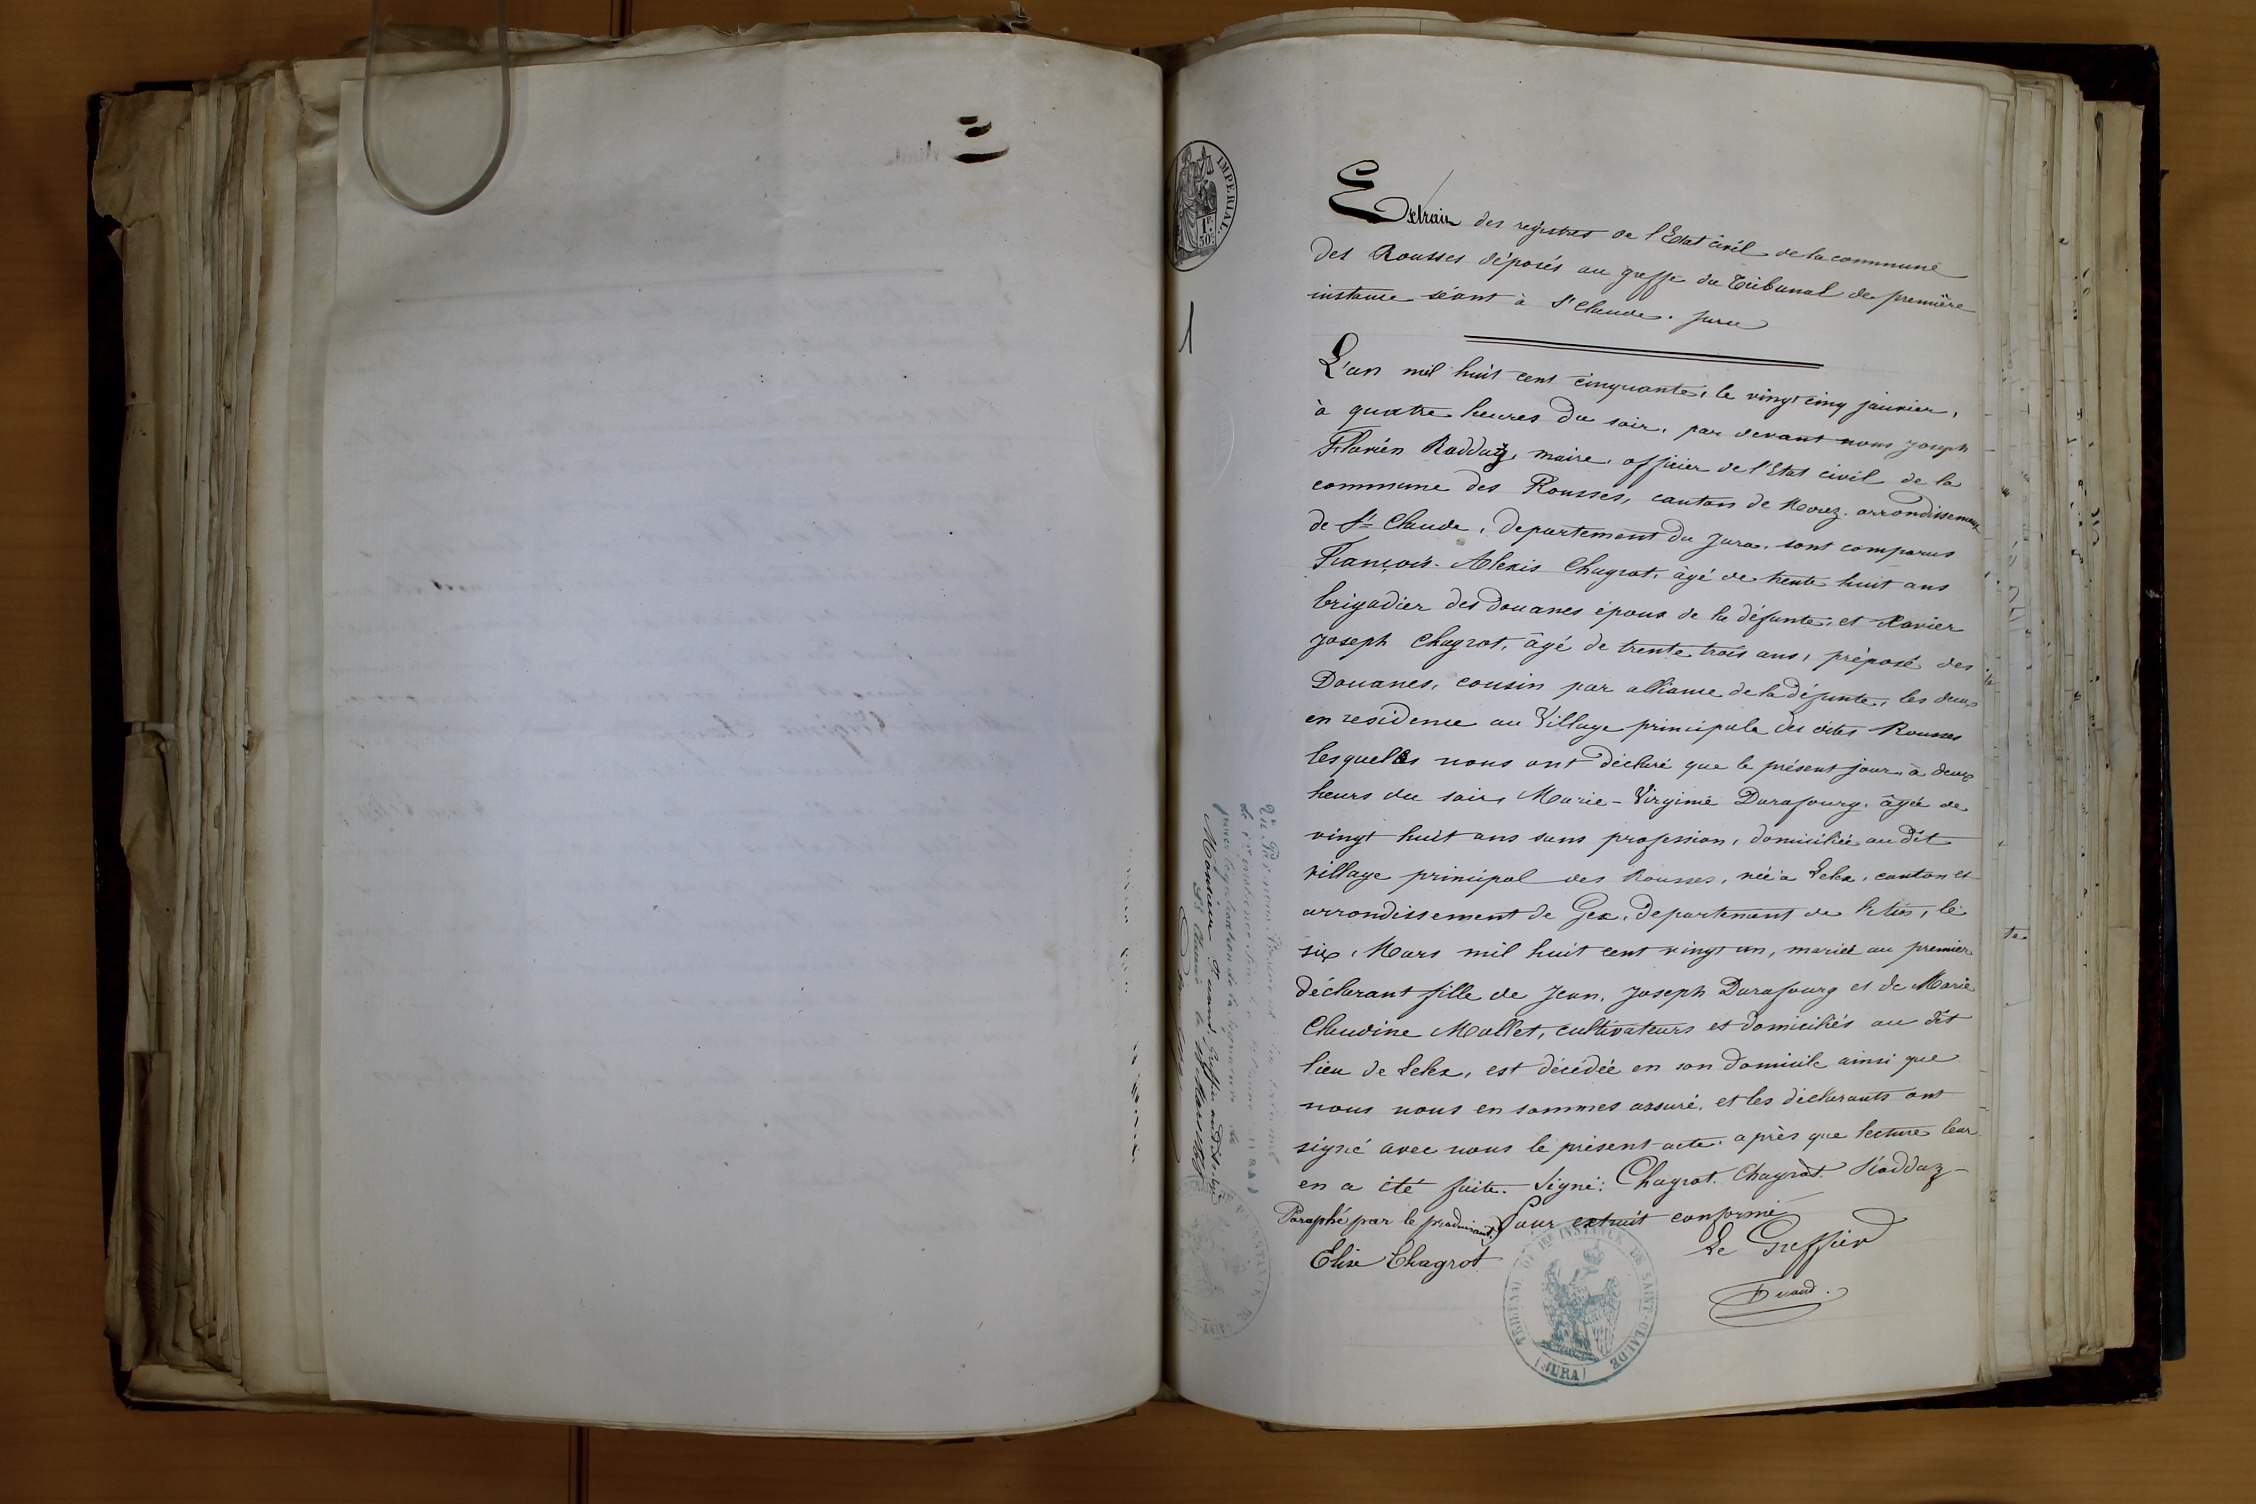 IMPERIAL.
1F.
50c
1
Extrait des registres de l'Etat civil de la commune
des Rousses déposés au greffe du Tribunal de première
instance séant à St Claude. Jura
L'an mil huit cent cinquante, le vingt cinq janvier,
à quatre heures du soir, par devant nous Joseph
Florien Raddaz, maire, officier de l'Etat civil de la
commune des Rousses, canton de Morez, arrondissement
de St Claude, département du Jura, sont comparus
François-Alexis Chagrot, âgé de trente huit ans
brigadier des Douanes époux de la défunte, et Xavier
Joseph Chagrot, âgé de trente trois ans, préposé des
Douanes, cousin par alliance de la défunte, les deux
en residence au Village principale des dites Rousses
lesquels nous ont déclaré que le présent jour, à deux
heurs du soir, Marie-Virginie Durafourg, âgée de
vingt huit ans sans profession, domiciliée au dit
village principal des Rousses, née à Lelex, canton et
arrondissement de Gex, département de l'Ain, le
six, Mars mil huit cent vingt un, mariée au premier
déclarant fille de Jean, Joseph Durafourg et de Marie
Claudine Mallet, cultivateurs et domiciliés au dit
lieu de Lelex, est décédée en son domicile ainsi que
nous nous en sommes assuré, et les déclarants ont
signé avec nous le présent acte, après que lecture leur
en a été faite. Signé: Chagrot. Chagrot. Raddaz-
Paraphé par le produisant, Pour extrait conforme
Elise Chagrot Le Greffier
TRIBUNAL DE 1RE INSTANCE DE SAINT-CLAUDE
(JURA)